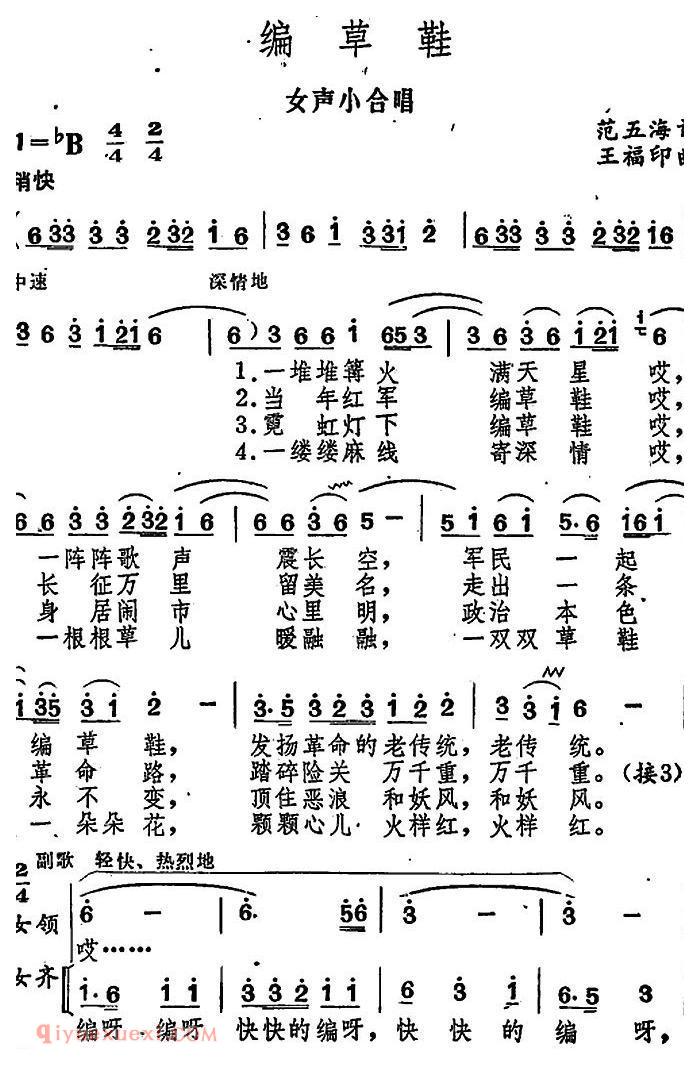 编草鞋
女声小合唱
范五海
1=♭B 4/4 2/4
王福印
稍快
6 3 3 3 3 2 3 2 1 6 | 3 6 1 3 3 1 2 | 6 3 3 3 3 2 3 2 1 6
中速 深情地
3 6 3 1 2 1 6 | 6 ) 3 6 6 1 6 5 3 | 3 6 3 6 1 2 1 6
1.一堆堆篝火 满天星哎,
2.当年红军 编草鞋哎,
3.霓虹灯下 编草鞋哎,
4.一缕缕麻线 寄深情哎,
6 6 3 3 2 3 2 1 6 | 6 6 3 6 5 - | 5 1 6 1 5. 6 1 6 1
一阵阵歌声 震长空, 军民一起
长征万里 留美名, 走出一条
身居闹市 心里明, 政治本色
一根根草儿 暖融融, 一双双草鞋
1 3 5 3 1 2 - | 3. 5 3 2 3 1 2 2 | 3 3 1 6 -
编草鞋, 发扬革命的老传统,老传统。
革命路, 踏碎险关 万千重,万千重。(接3)
永不变, 顶住恶浪 和妖风,和妖风。
一朵朵花, 颗颗心儿 火样红,火样红。
副歌 轻快、热烈地
2/4
女领 6 - | 6. 5 6 | 3 - | 3 -
哎……
女齐 1. 6 1 1 | 3 3 2 1 1 | 6 3 1 | 6. 5 3
编呀 编呀 快快的编呀,快快的编呀,